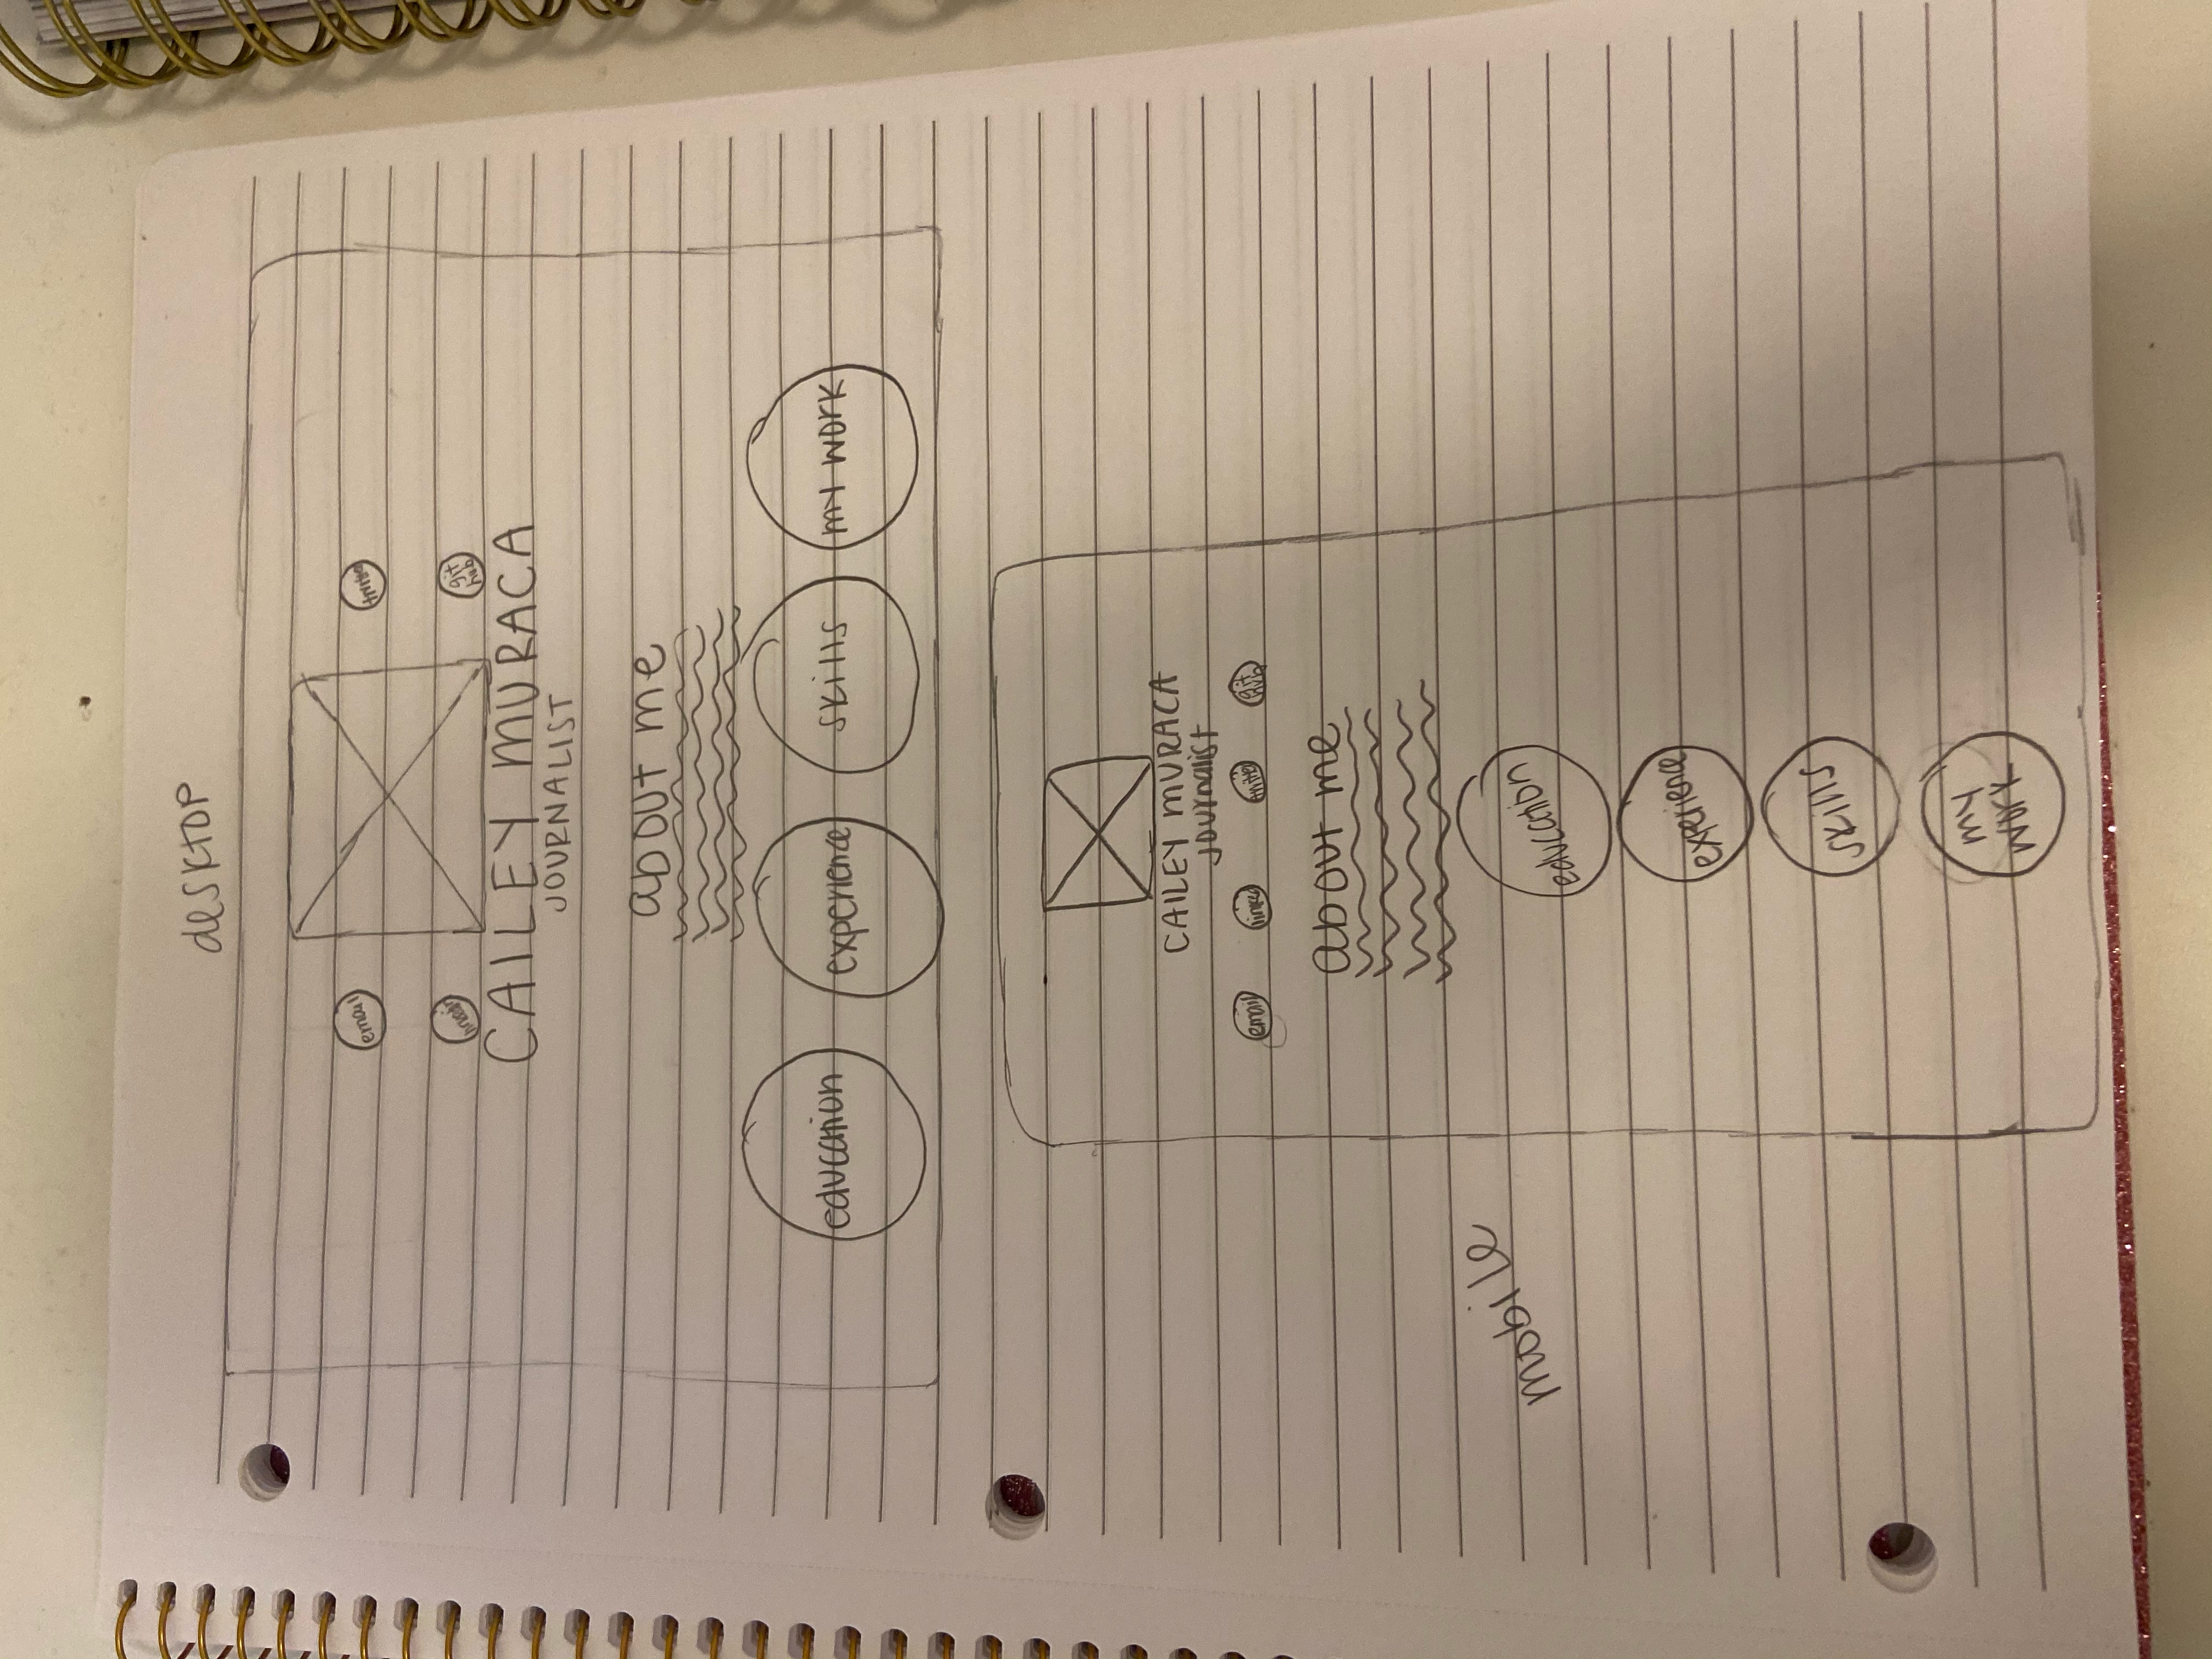 desktop
email
twitter
linkedin
git
hub
CAILEY MURACA
JOURNALIST
about me
education
experience
skills
my work
CAILEY MURACA
Journalist
email
linked
twitter
git
hub
about me
mobile
education
experience
skills
my
work